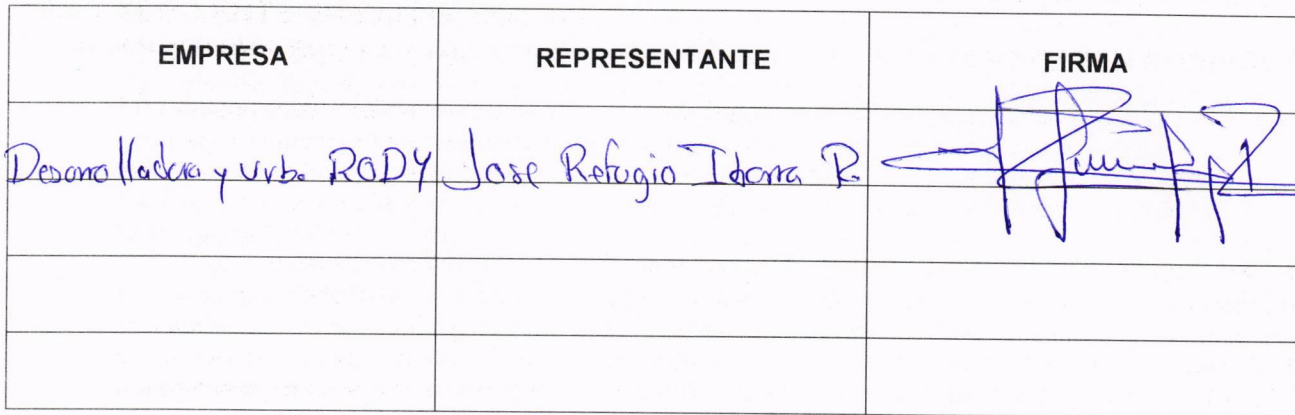 EMPRESA REPRESENTANTE FIRMA
Desarrolladora y Urb. RODY Jose Refugio Ibarra R.